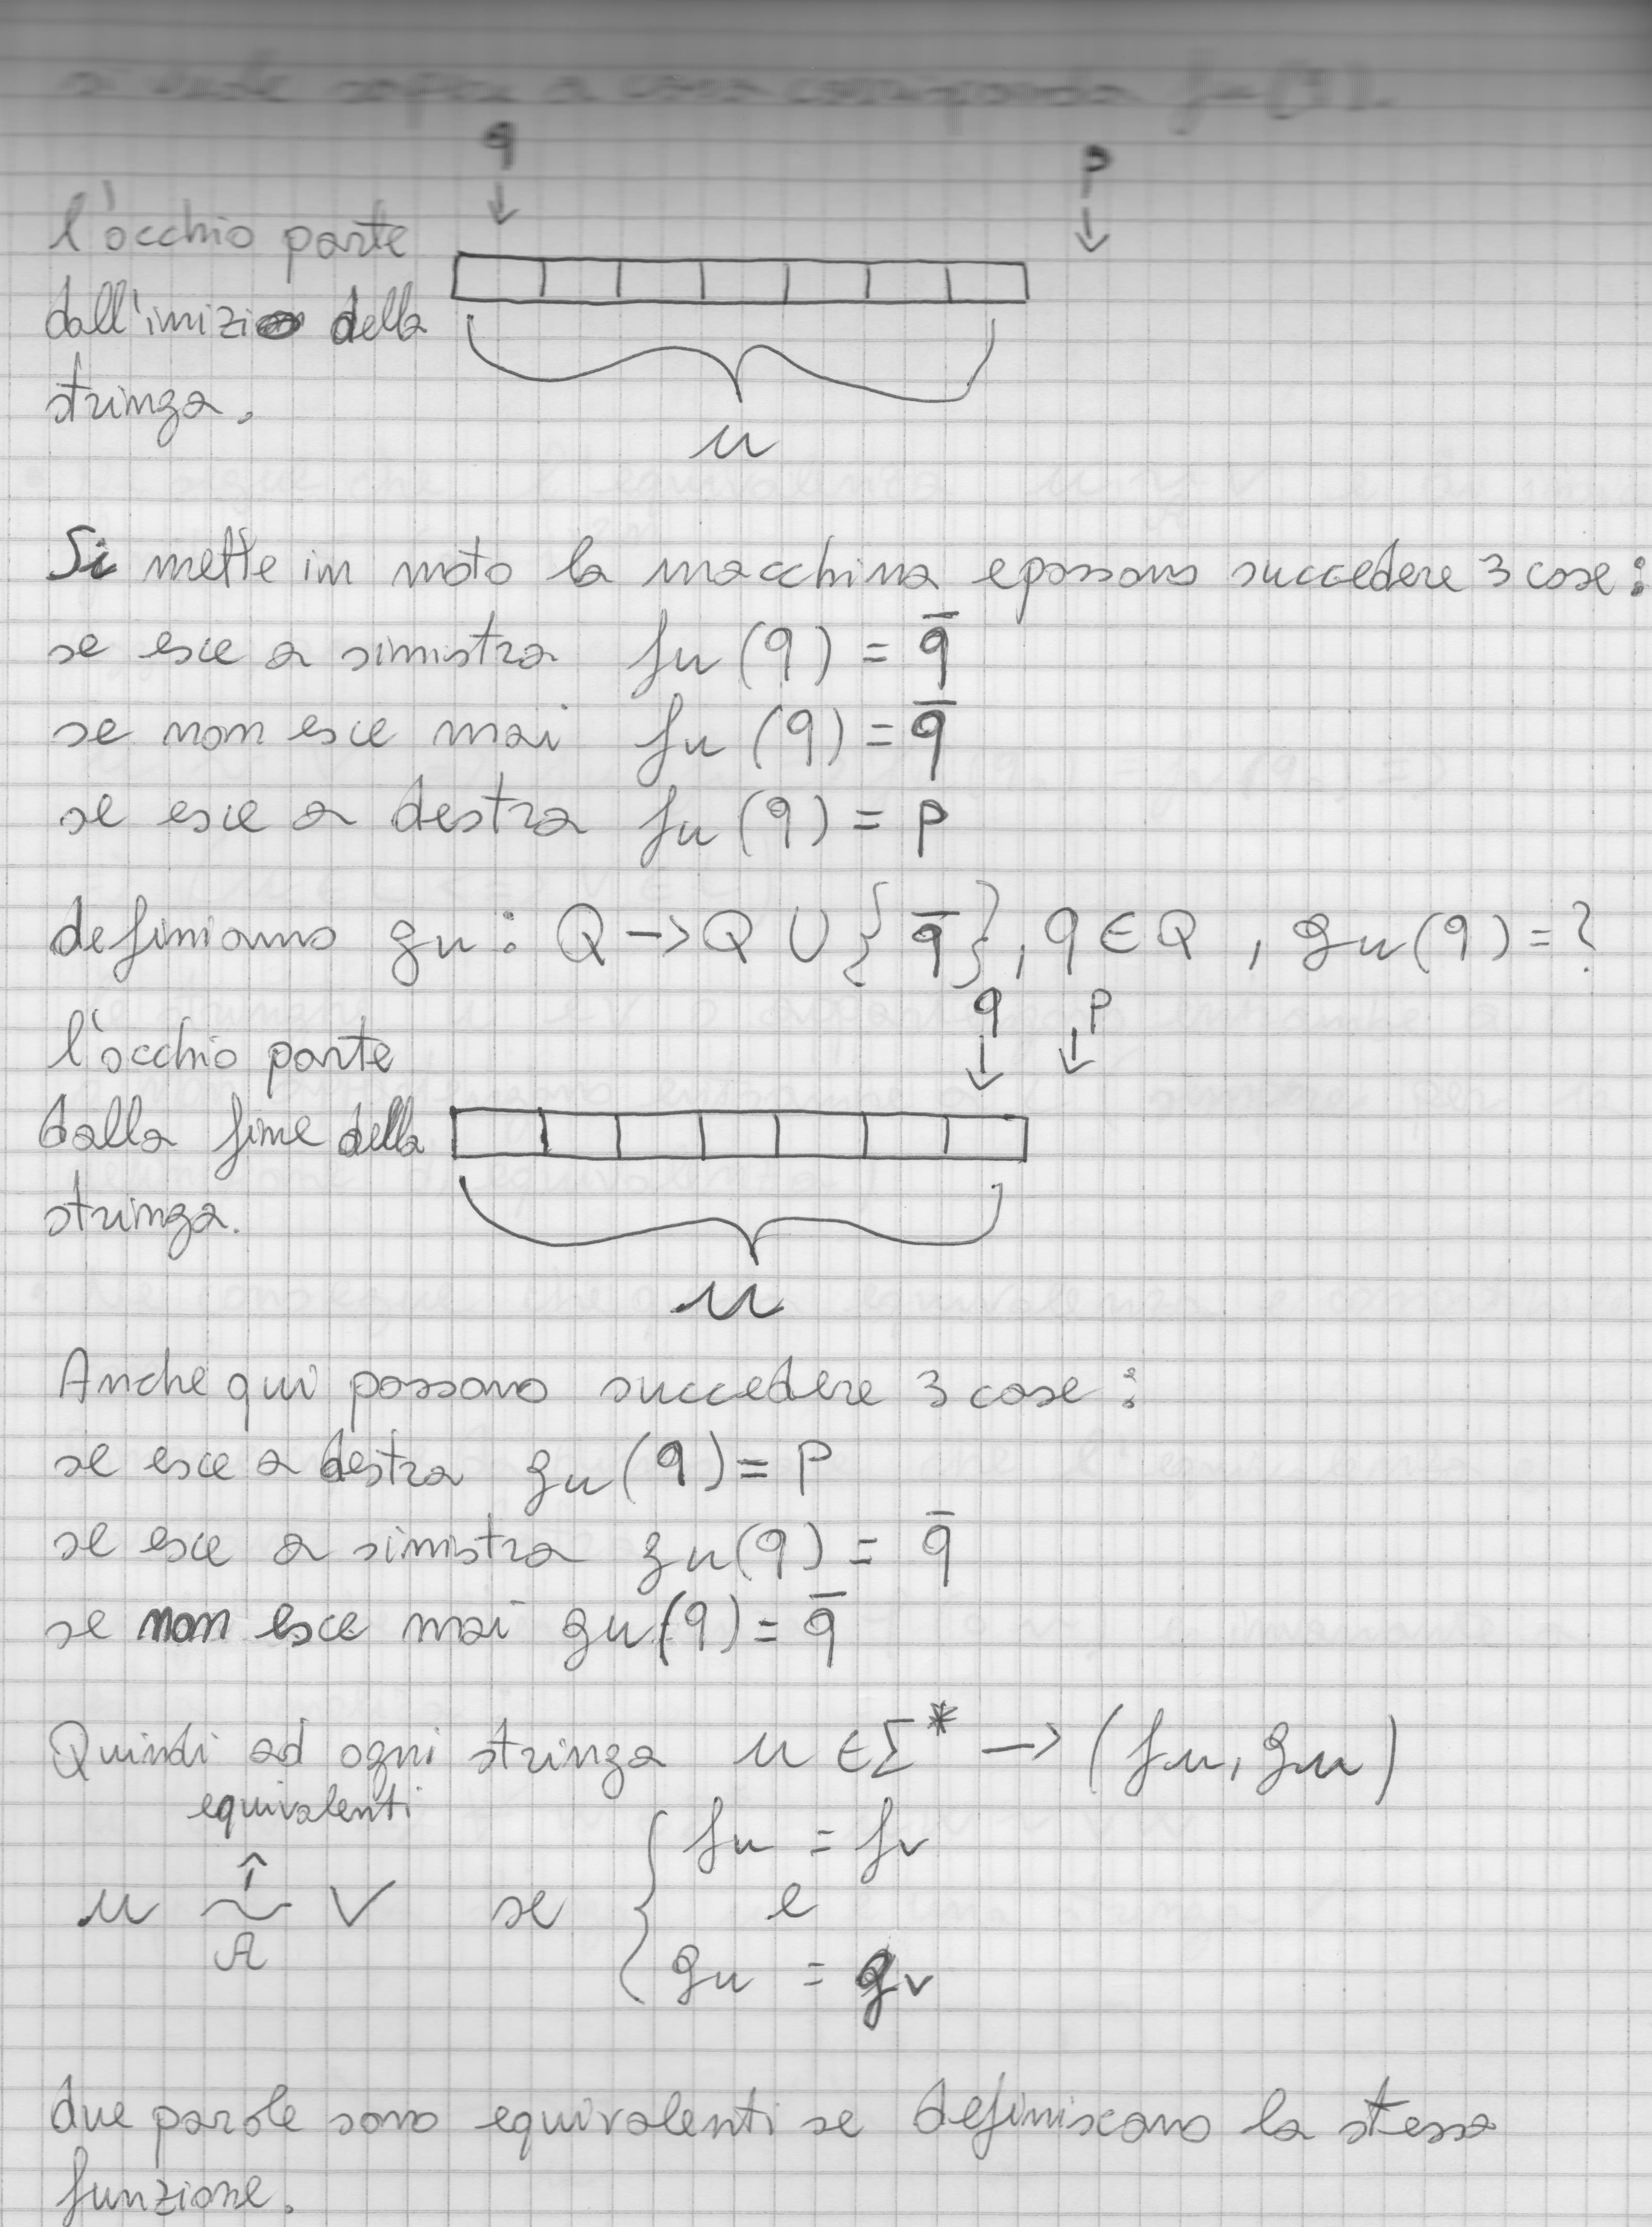 si vuole sapere a cosa corrisponde
q
p
l'occhio parte
dall'inizio della
stringa.
u
Si mette in moto la macchina e possono succedere 3 cose:
se esce a sinistra fu (q) = q̄
se non esce mai fu (q) = q̄
se esce a destra fu (q) = p
definiamo gu : Q → Q ∪ {q̄}, q ∈ Q, gu(q) = ?
q p
l'occhio parte
dalla fine della
stringa.
u
Anche qui possono succedere 3 cose:
se esce a destra gu(q) = p
se esce a sinistra gu(q) = q̄
se non esce mai gu(q) = q̄
Quindi ad ogni stringa u ∈ Σ* → (fu, gu)
equivalenti
↑
u ~ v se { fu = fv
A e
gu = gv
due parole sono equivalenti se definiscono la stessa
funzione.